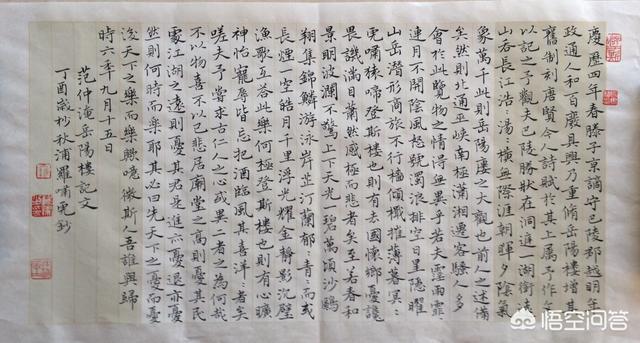 慶歷四年春滕子京謫守巴陵郡越明年
政通人和百廢具興乃重脩岳陽樓增其
舊制刻唐賢今人詩賦於其上屬予作文
以記之予觀夫巴陵勝狀在洞庭一湖銜遠
山吞長江浩:湯:橫無際涯朝暉夕陰氣
象萬千此則岳陽樓之大觀也前人之述備
矣然則北通巫峽南極瀟湘遷客騷人多
會於此覽物之情得無異乎若夫霪雨霏:
連月不開陰風怒號濁浪排空日星隱曜
山岳潛形商旅不行檣傾楫摧薄暮冥:
虎嘯猿啼登斯樓也則有去國懷鄉憂讒
畏譏滿目蕭然感極而悲者矣至若春和
景明波瀾不驚上下天光一碧萬頃沙鷗
翔集錦鱗游泳岸芷汀蘭郁:青:而或
長煙一空皓月千里浮光耀金靜影沉璧
漁歌互答此樂何極登斯樓也則有心曠
神怡寵辱皆忘把酒臨風其喜洋:者矣
嗟夫予嘗求古仁人之心或異二者之為何哉
不以物喜不以己悲居廟堂之高則憂其民
處江湖之遠則憂其君是進亦憂退亦憂
然則何時而樂耶其必曰先天下之憂而憂
後天下之樂而樂歟噫微斯人吾誰與歸
時六年九月十五日
范仲淹岳陽樓記文
丁酉歲杪秋浦羅嘯 鈔
悟空问答